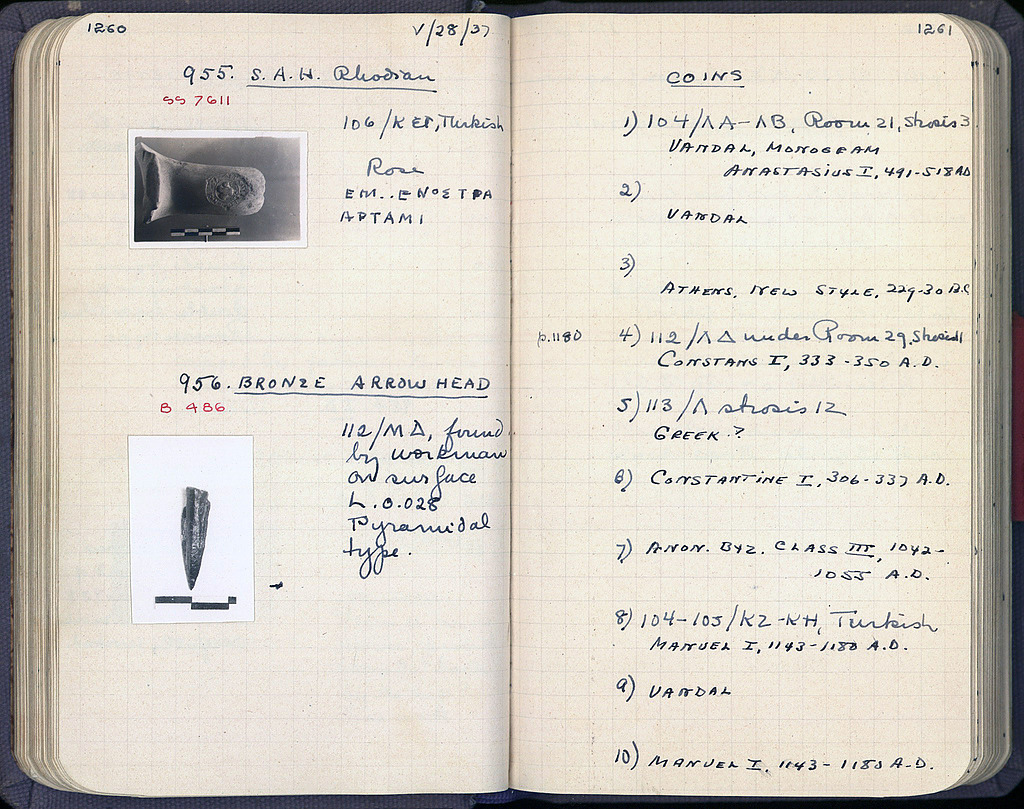 1260
V/28/37
955. S.A.H. Rhodian
SS 7611
106/K ET, Turkish
Rose
ΕΜ..ΕΝΟΣΤΡΑ
ΑΡΤΑΜΙ
956. BRONZE ARROWHEAD
B 486
112/ΜΔ, found
by workman
on surface
L. 0.028
Pyramidal
type.
1261
COINS
1) 104/ΛΑ-ΛΒ, Room 21, Strosis 3
VANDAL, MONOGRAM
ANASTASIUS I, 491-518 AD
2)
VANDAL
3)
ATHENS, NEW STYLE, 229-30 B.C
p.1180
4) 112/ΛΔ under Room 29, Strosis 11
CONSTANS I, 333-350 A.D.
5) 113/Λ strosis 12
GREEK ?
6) CONSTANTINE I, 306-337 A.D.
7) ANON. BYZ. CLASS III, 1042-
1055 A.D.
8) 104-105/ΚΖ-ΚΗ, Turkish
MANUEL I, 1143-1180 A.D.
9) VANDAL
10) MANUEL I, 1143-1180 A.D.